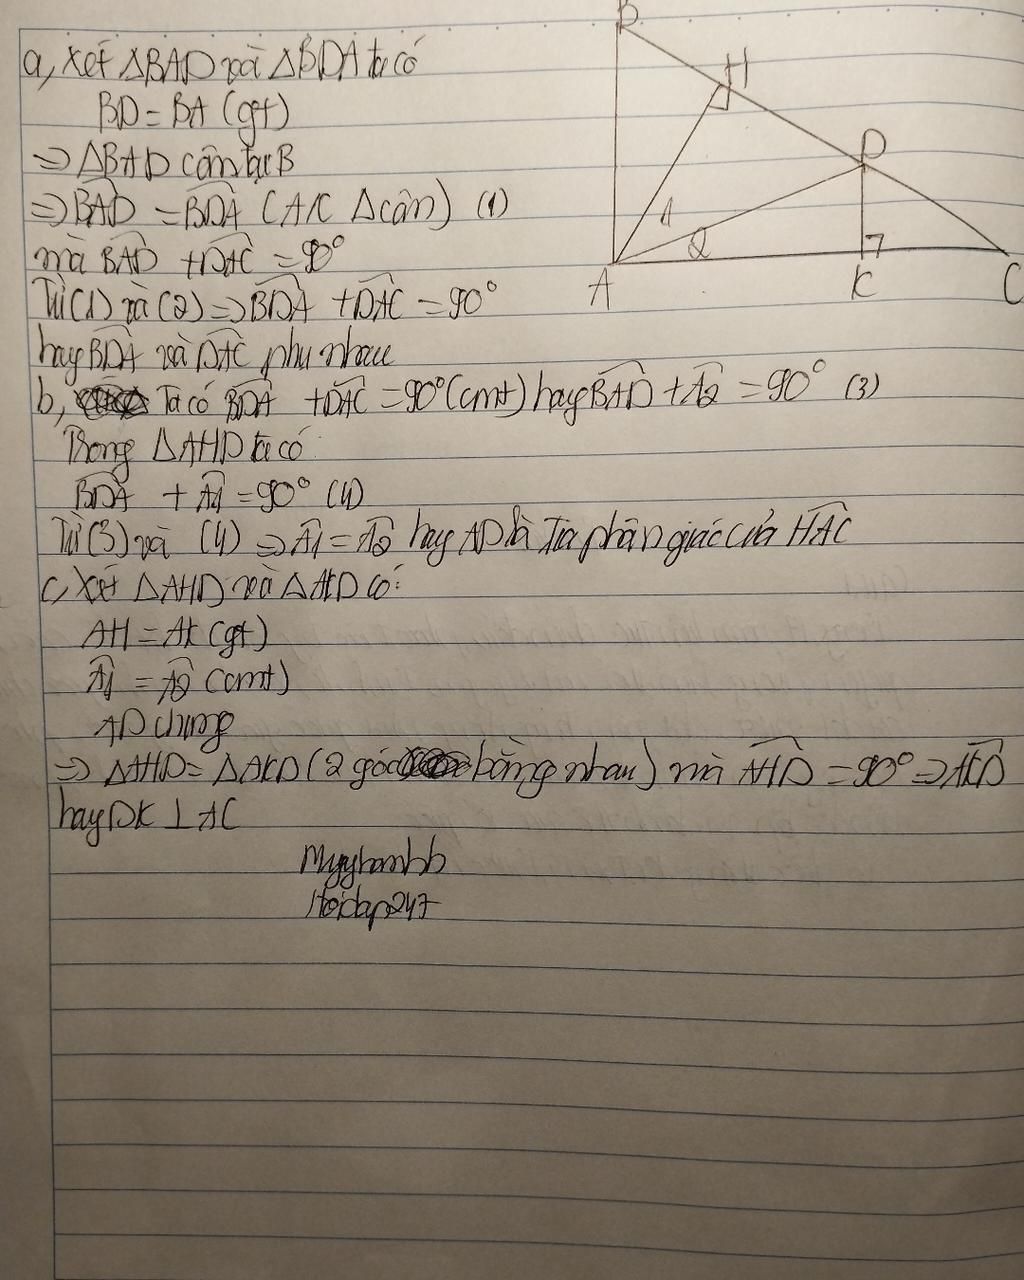 a, Xét ΔBAD và ΔBDA ta có
BD = BA (gt)
=> ΔBAD cân tại B
=> BAD = BDA (T/C Δcân) (1)
mà BAD + DAC = 90°
Từ (1) và (2) => BDA + DAC = 90°
hay BDA và DAC phụ nhau
b, Ta có BDA + DAC = 90° (cmt) hay BAD + A2 = 90° (3)
Trong ΔAHD ta có
BDA + A1 = 90° (4)
Từ (3) và (4) => A1 = A2 hay AD là Tia phân giác của HAC
c, Xét ΔAHD và ΔAKD có:
AH = AK (gt)
A1 = A2 (cmt)
AD chung
=> ΔAHD = ΔAKD (2 góc bằng nhau) mà AHD = 90° => AKD
hay DK ⊥ AC
Hoidap247
B
H
D
1
2
A
K
C